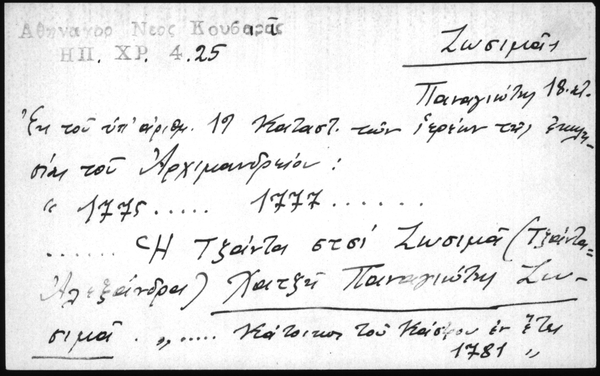 Αθηναγορ Νεος Κουβαρᾶς
ΗΠ. ΧΡ. 4.25
Ζωσιμᾶς
Παναγιώτης 18. αἰ.
Ἐκ τοῦ ὑπ' ἀριθμ. 19 Καταστ. τῶν ἱερέων τῆς ἐκκλη-
σίας τοῦ Ἀρχιμανδρείου :
" 1775 ..... 1777 .......
...... Ἡ Τζάντα στσί Ζωσιμᾶ (Τζάντα=
Ἀλεξάνδρα) Χατζῆ Παναγιώτη Ζω-
σιμᾶ . „ ..... Κάτοικος τοῦ ἐν ἔτει
1781 „